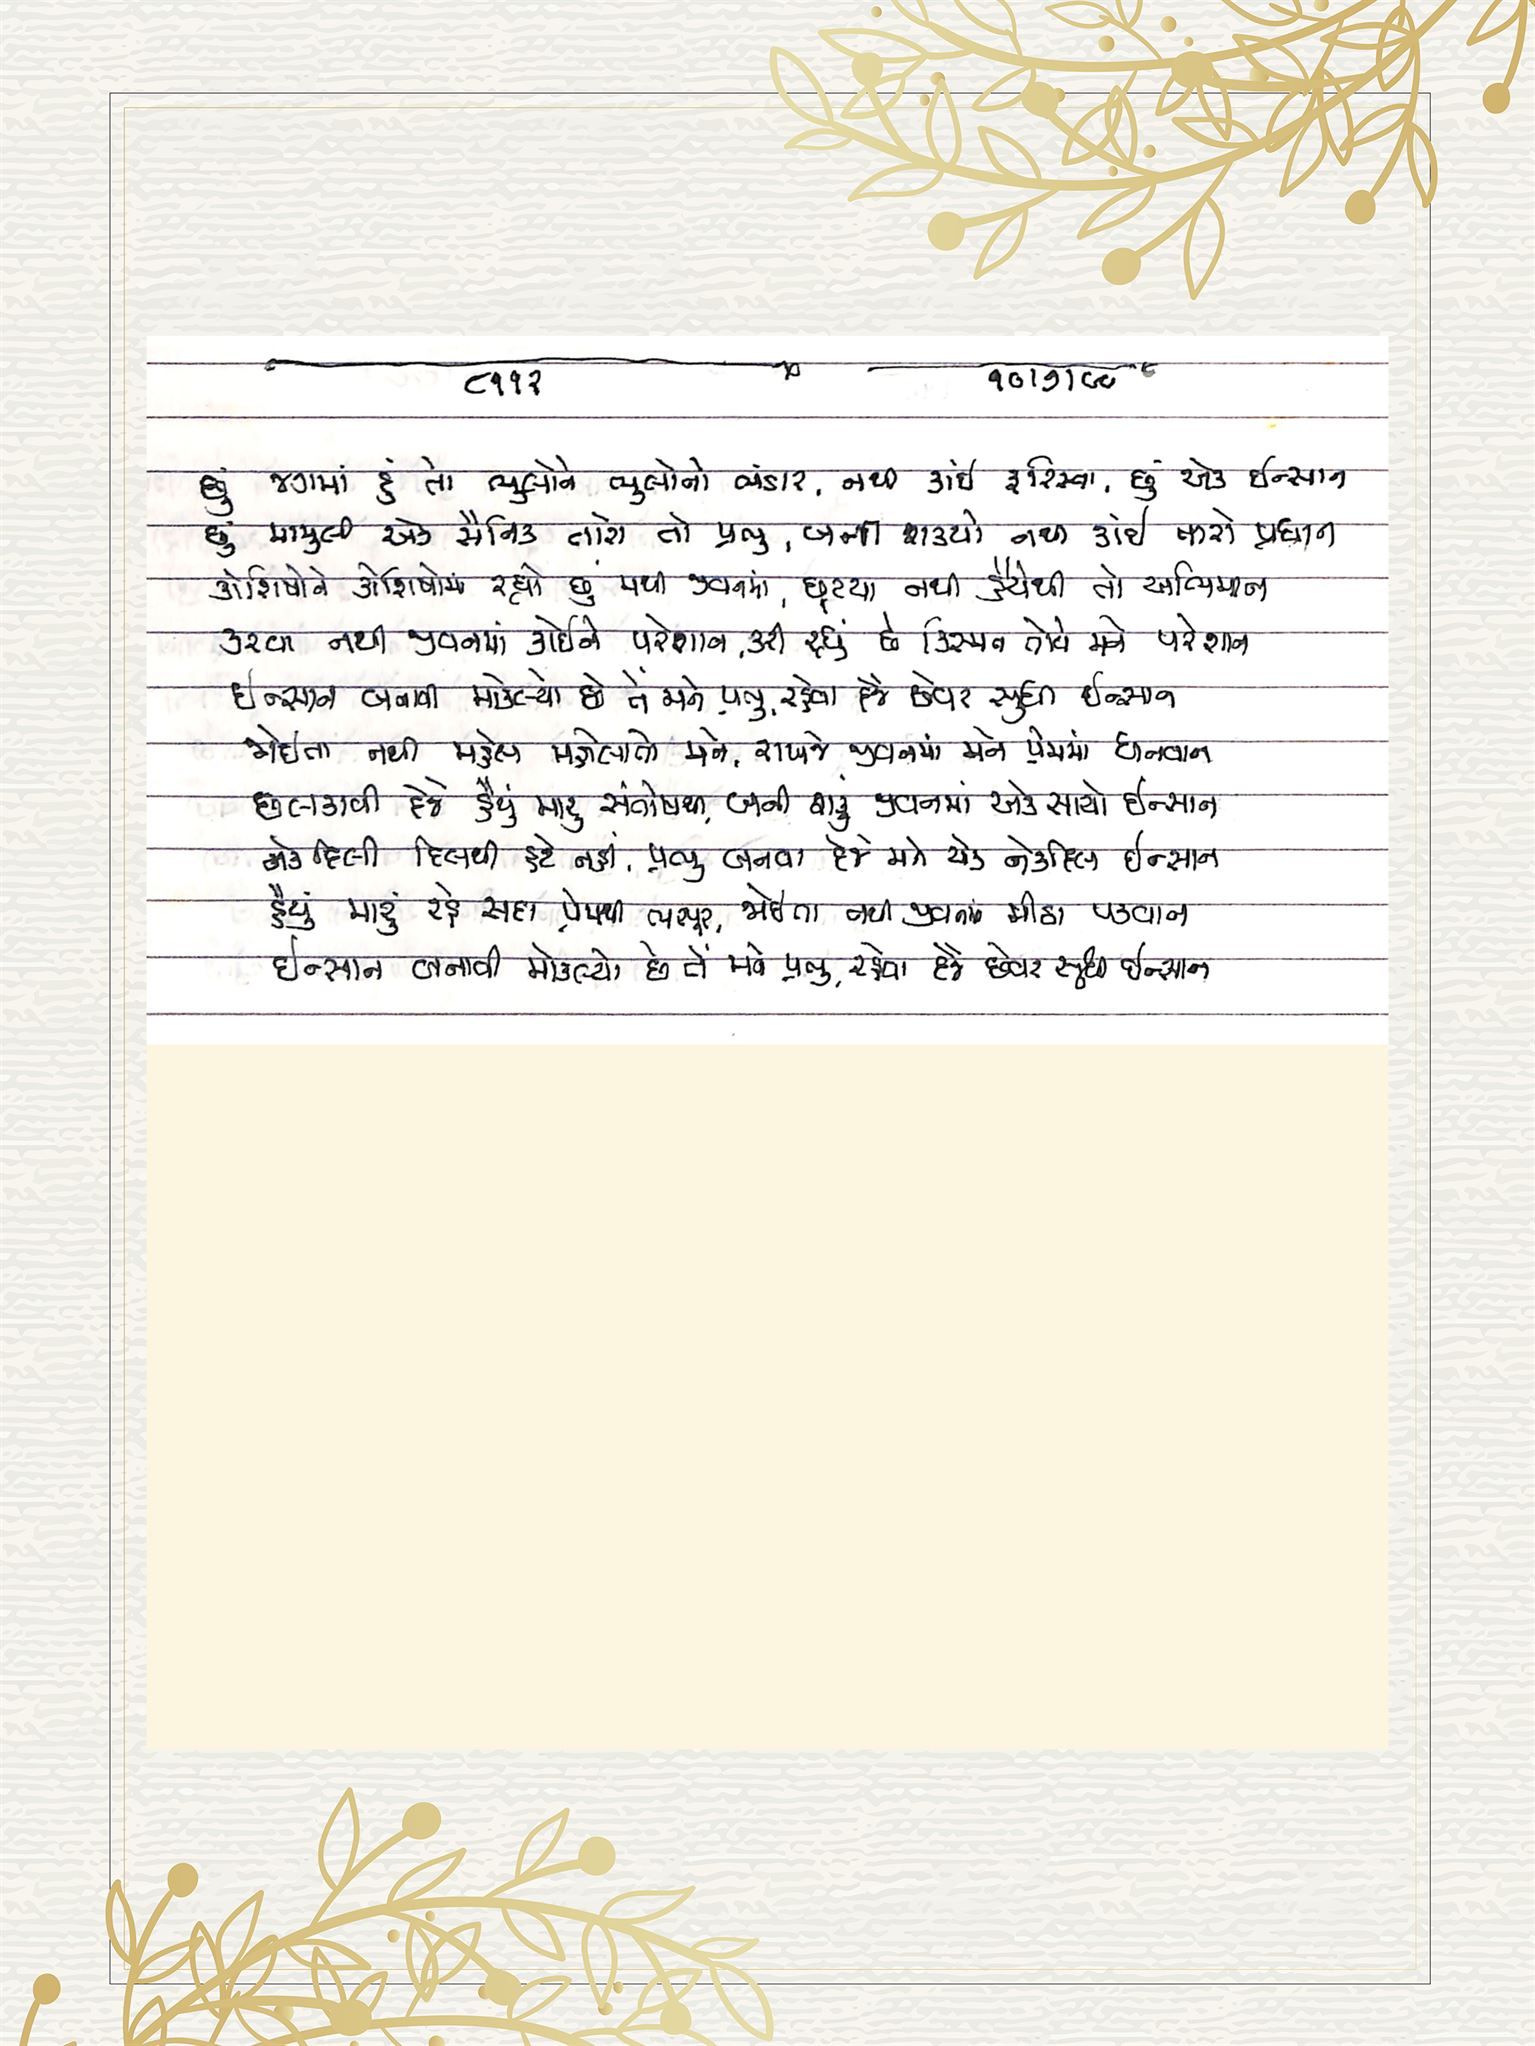 ૮૧૧૨ ૧૦|૭|૯૯
છું જગમાં હું તો ભુલોને ભુલોનો ભંડાર, નથી કાંઈ ફરિસ્તા, છું એક ઈન્સાન
છું મામુલી એક સૈનિક તારો તો પ્રભુ, બની શક્યો નથી કાંઈ તારો પ્રધાન
કોશિષોને કોશિષોમાં રહ્યો છું મથી જીવનમાં, છૂટયા નથી હૈયેથી તો અભિમાન
કરવા નથી જીવનમાં કોઈને પરેશાન, કરી રહ્યું છે કિસ્મત તોયે મને પરેશાન
ઈન્સાન બનાવી મોકલ્યો છે તેં મને પ્રભુ, રહેવા દેજે છેવટ સુધી ઈન્સાન
જોઈતા નથી મહેલ મહોલાતો મને, રાખજે જીવનમાં મને પ્રેમમાં ધનવાન
છલકાવી દેજે હૈયું મારું સંતોષથી, બની શકું જીવનમાં એક સાચો ઈન્સાન
એકદિલી દિલથી હટે નહીં, પ્રભુ બનવા દેજે મને એક નેકદિલ ઈન્સાન
હૈયું મારું રહે સદા પ્રેમથી ભરપૂર, જોઈતા નથી જીવનમાં મીઠા પકવાન
ઈન્સાન બનાવી મોકલ્યો છે તેં મને પ્રભુ, રહેવા દેજે છેવટ સુધી ઈન્સાન